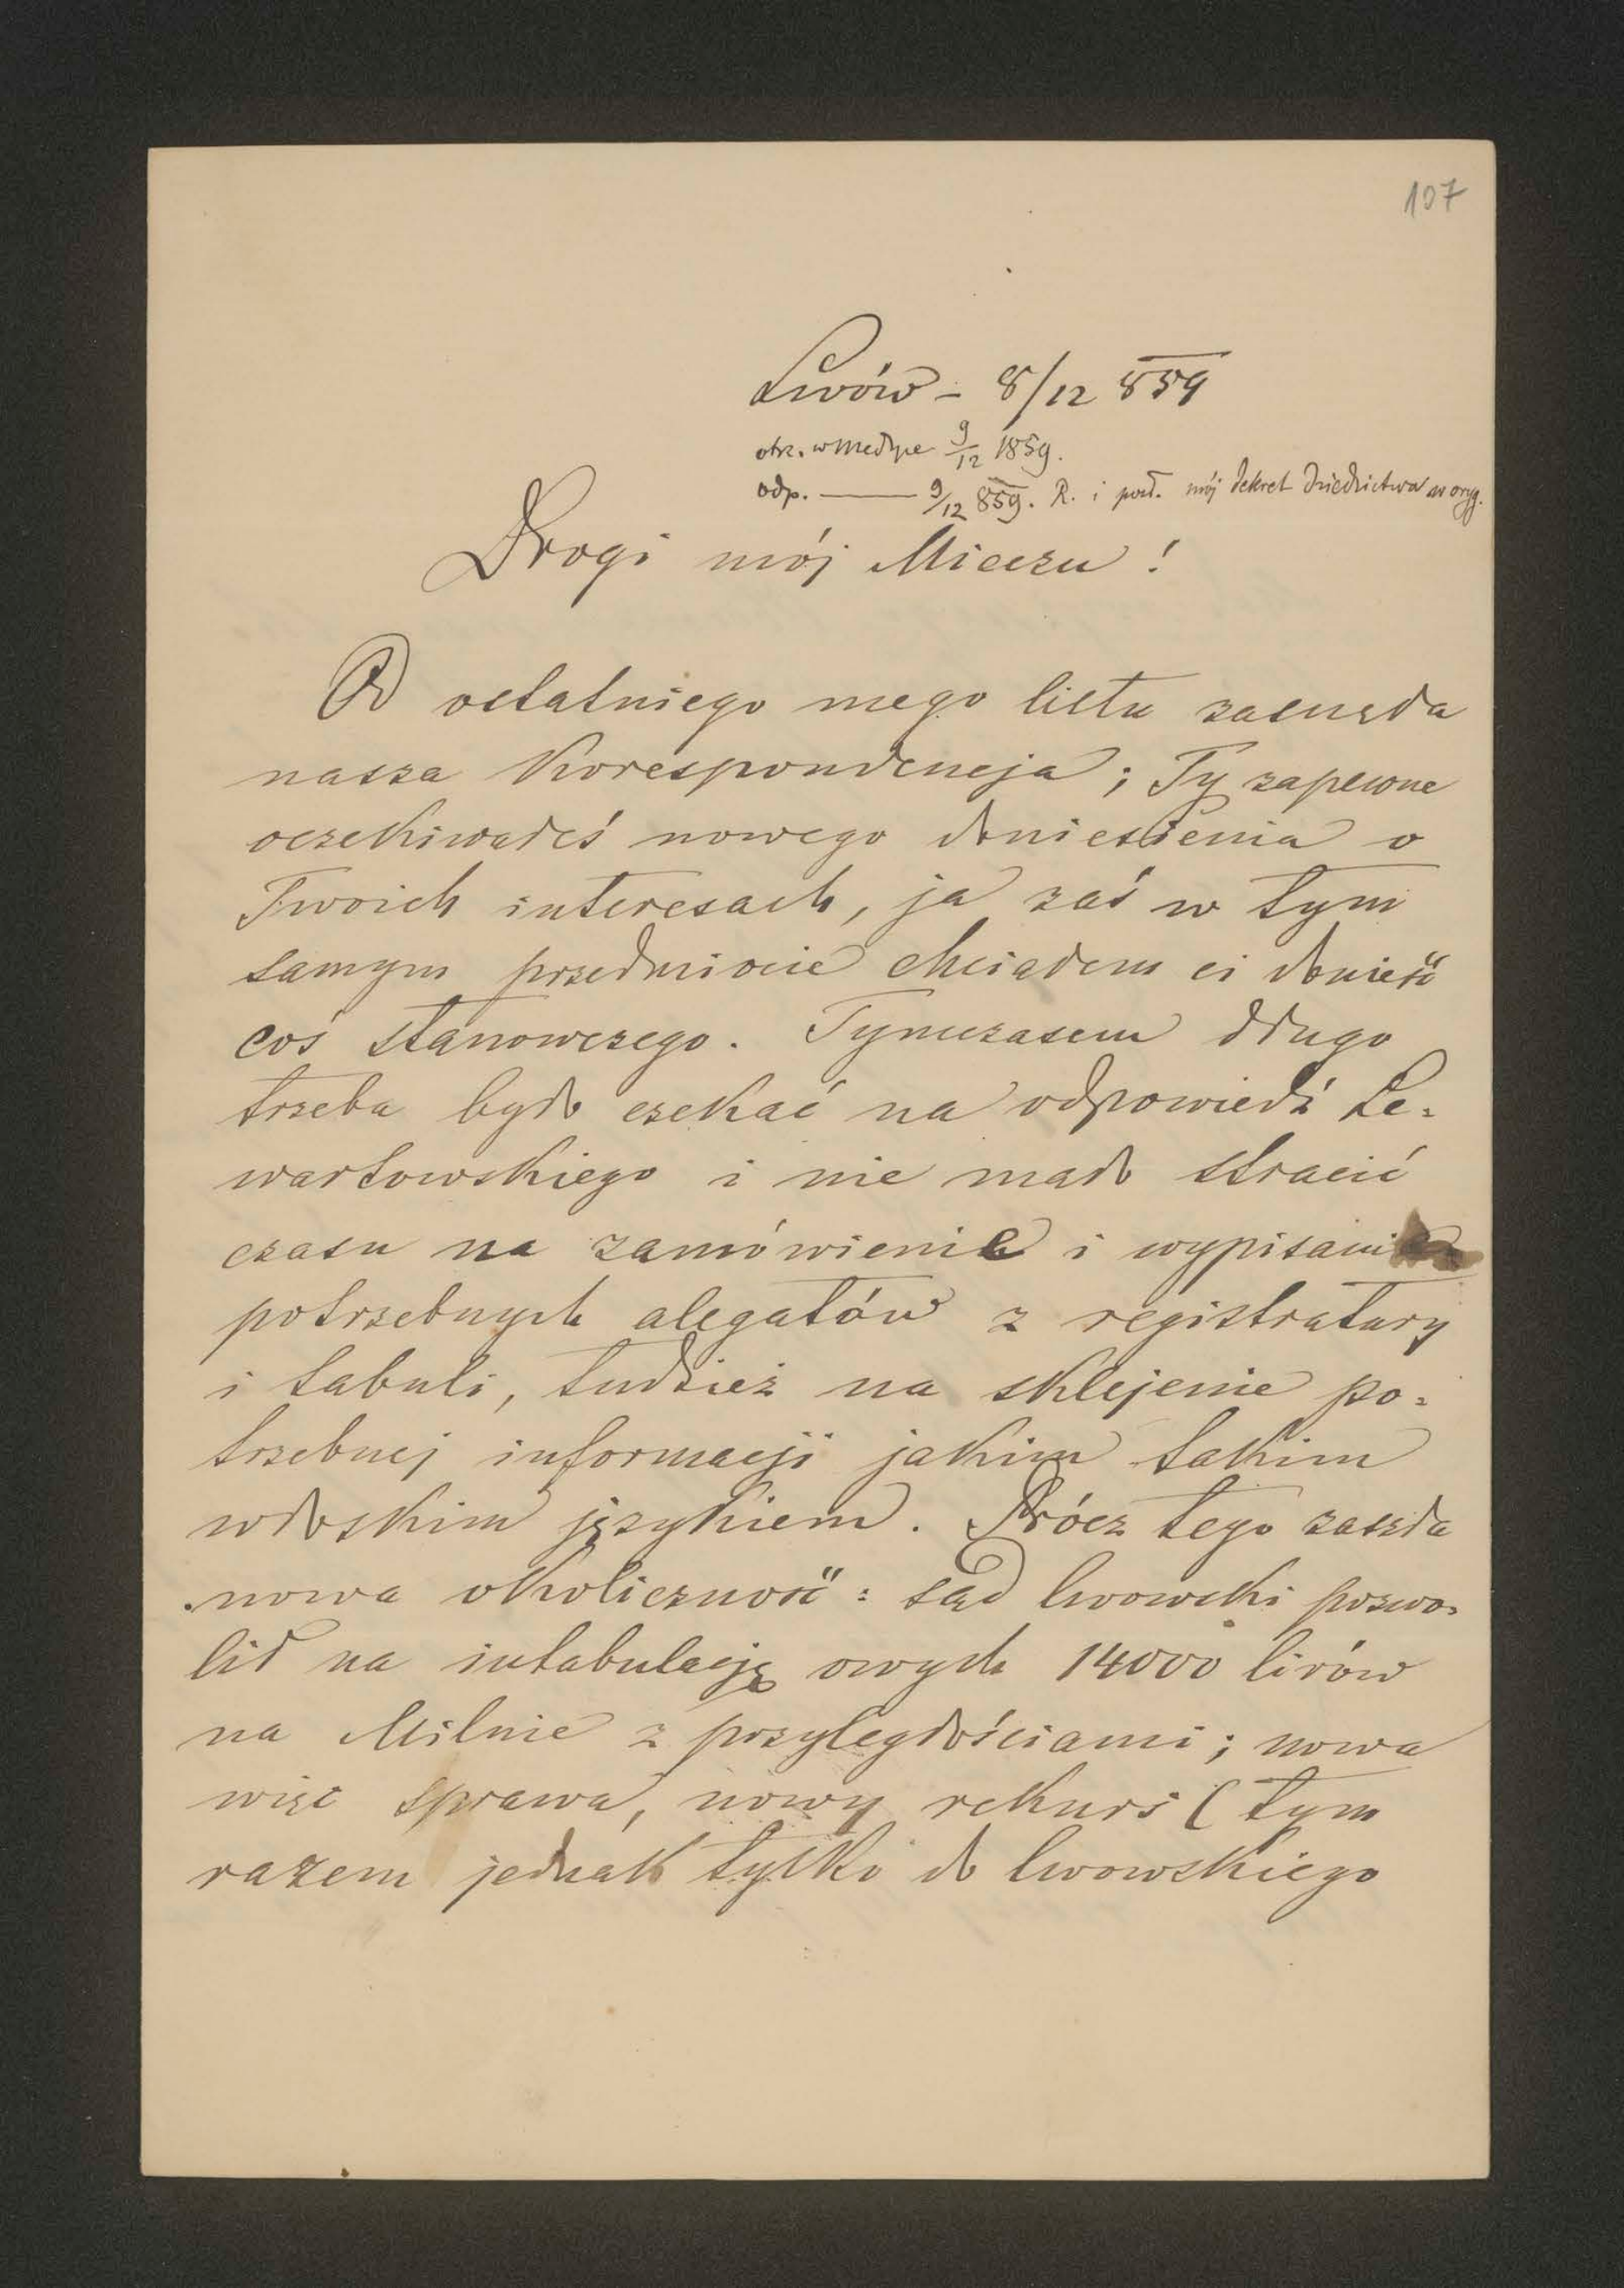 107
Lwów – 8/12 859
otrz. w Medyce 9/12 1859.
odp. —— 9/12 859. R. i posł. mój dekret dziedzictwa w oryg.
Drogi mój Mieczu!
Od ostatniego mego listu zasnęła
nasza Korespondencja; Ty zapewne
oczekiwałeś nowego doniesienia o
Twoich interesach, ja zaś w tym
samym przedmiocie chciałem ci donieść
coś stanowczego. Tymczasem długo
trzeba było czekać na odpowiedź Le=
wartowskiego i nie mało stracić
czasu na zamówienie i wypisanie
potrzebnych alegatów z registratury
i tabuli, tudzież na sklejenie po=
trzebnej informacji jakim takim
włoskim językiem. Prócz tego zaszła
nowa okoliczność: sąd lwowski pozwo=
lił na intabulację owych 14000 lirów
na Milnie z przyległościami; nowa
więc sprawa, nowy rekurs (tym
razem jednak tylko do lwowskiego